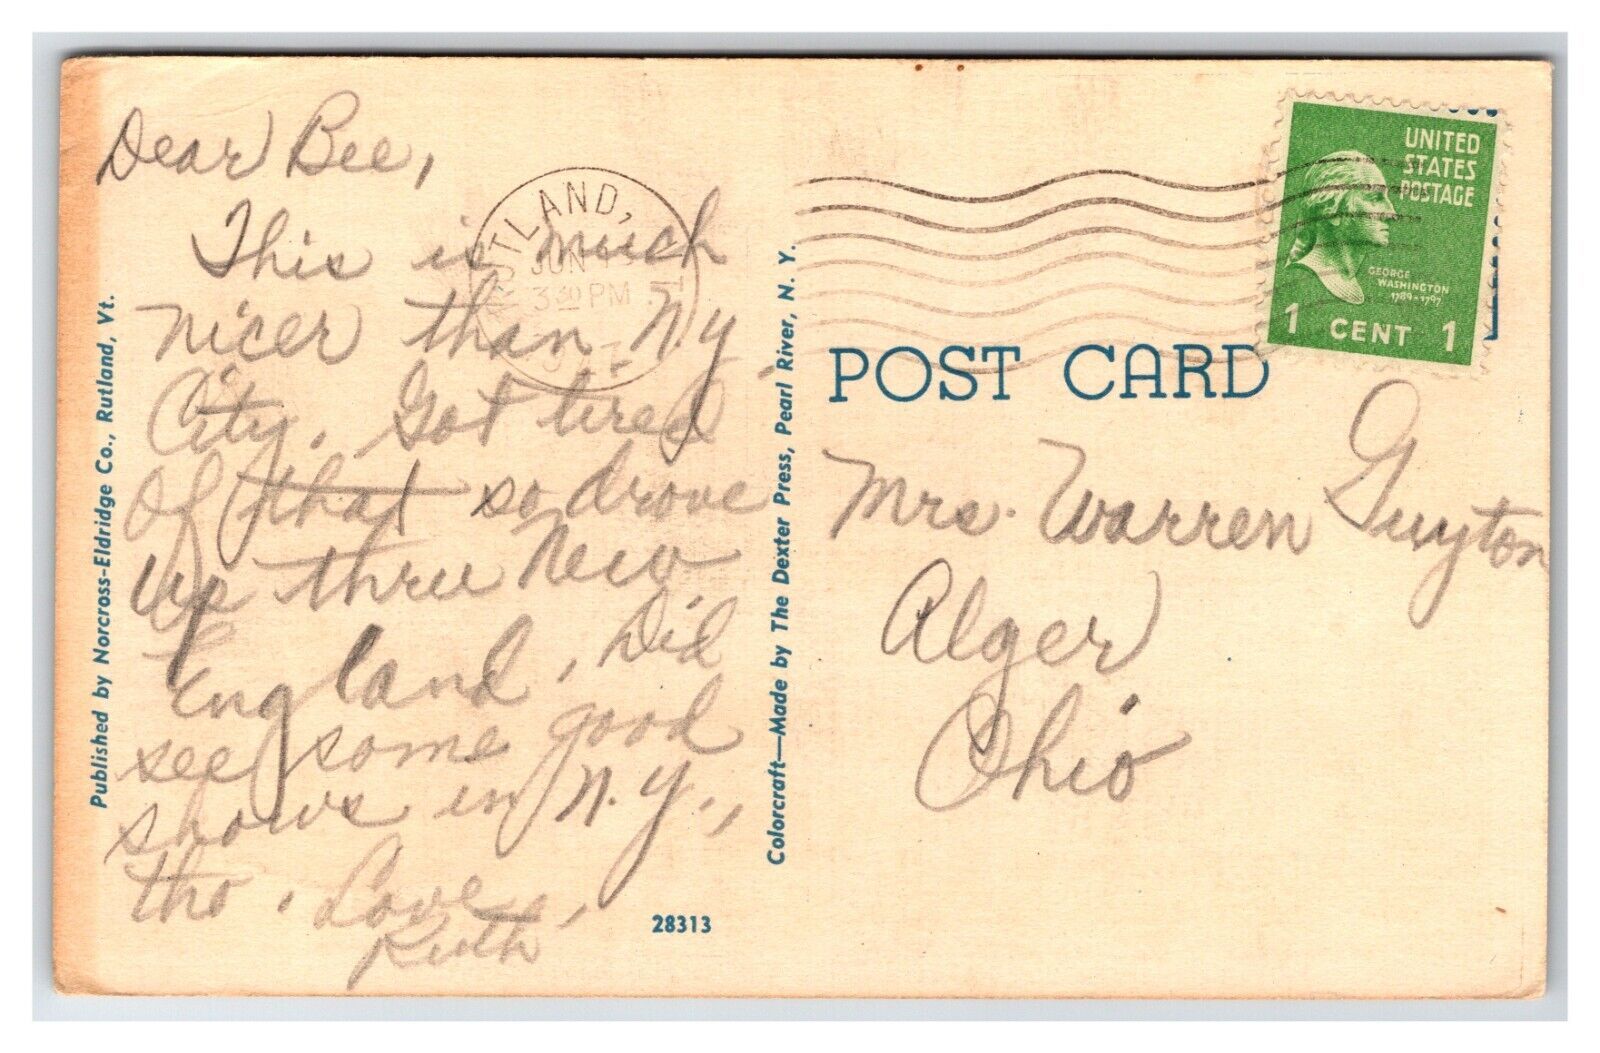 Dear Bee,
This is much
nicer than N.Y
City. Got tired
of that so drove
up thru New
England. Did
see some good
shows in N.Y.,
tho. Love,
Ruth
Published by Norcross-Eldridge Co., Rutland, Vt.
28313
Colorcraft—Made by The Dexter Press, Pearl River, N. Y.
RUTLAND,
JUN
3 30 PM
POST CARD
UNITED
STATES
POSTAGE
GEORGE
WASHINGTON
1789-1797
1 CENT 1
Mrs. Warren Guyton
Alger
Ohio